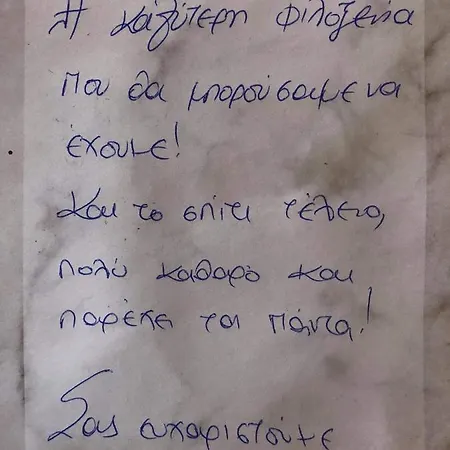 Η καλύτερη φιλοξενία
που θα μπορούσαμε να
έχουμε!
Και το σπίτι τέλειο,
πολύ καθαρό και
παρέχει τα πάντα!
Σας ευχαριστούμε